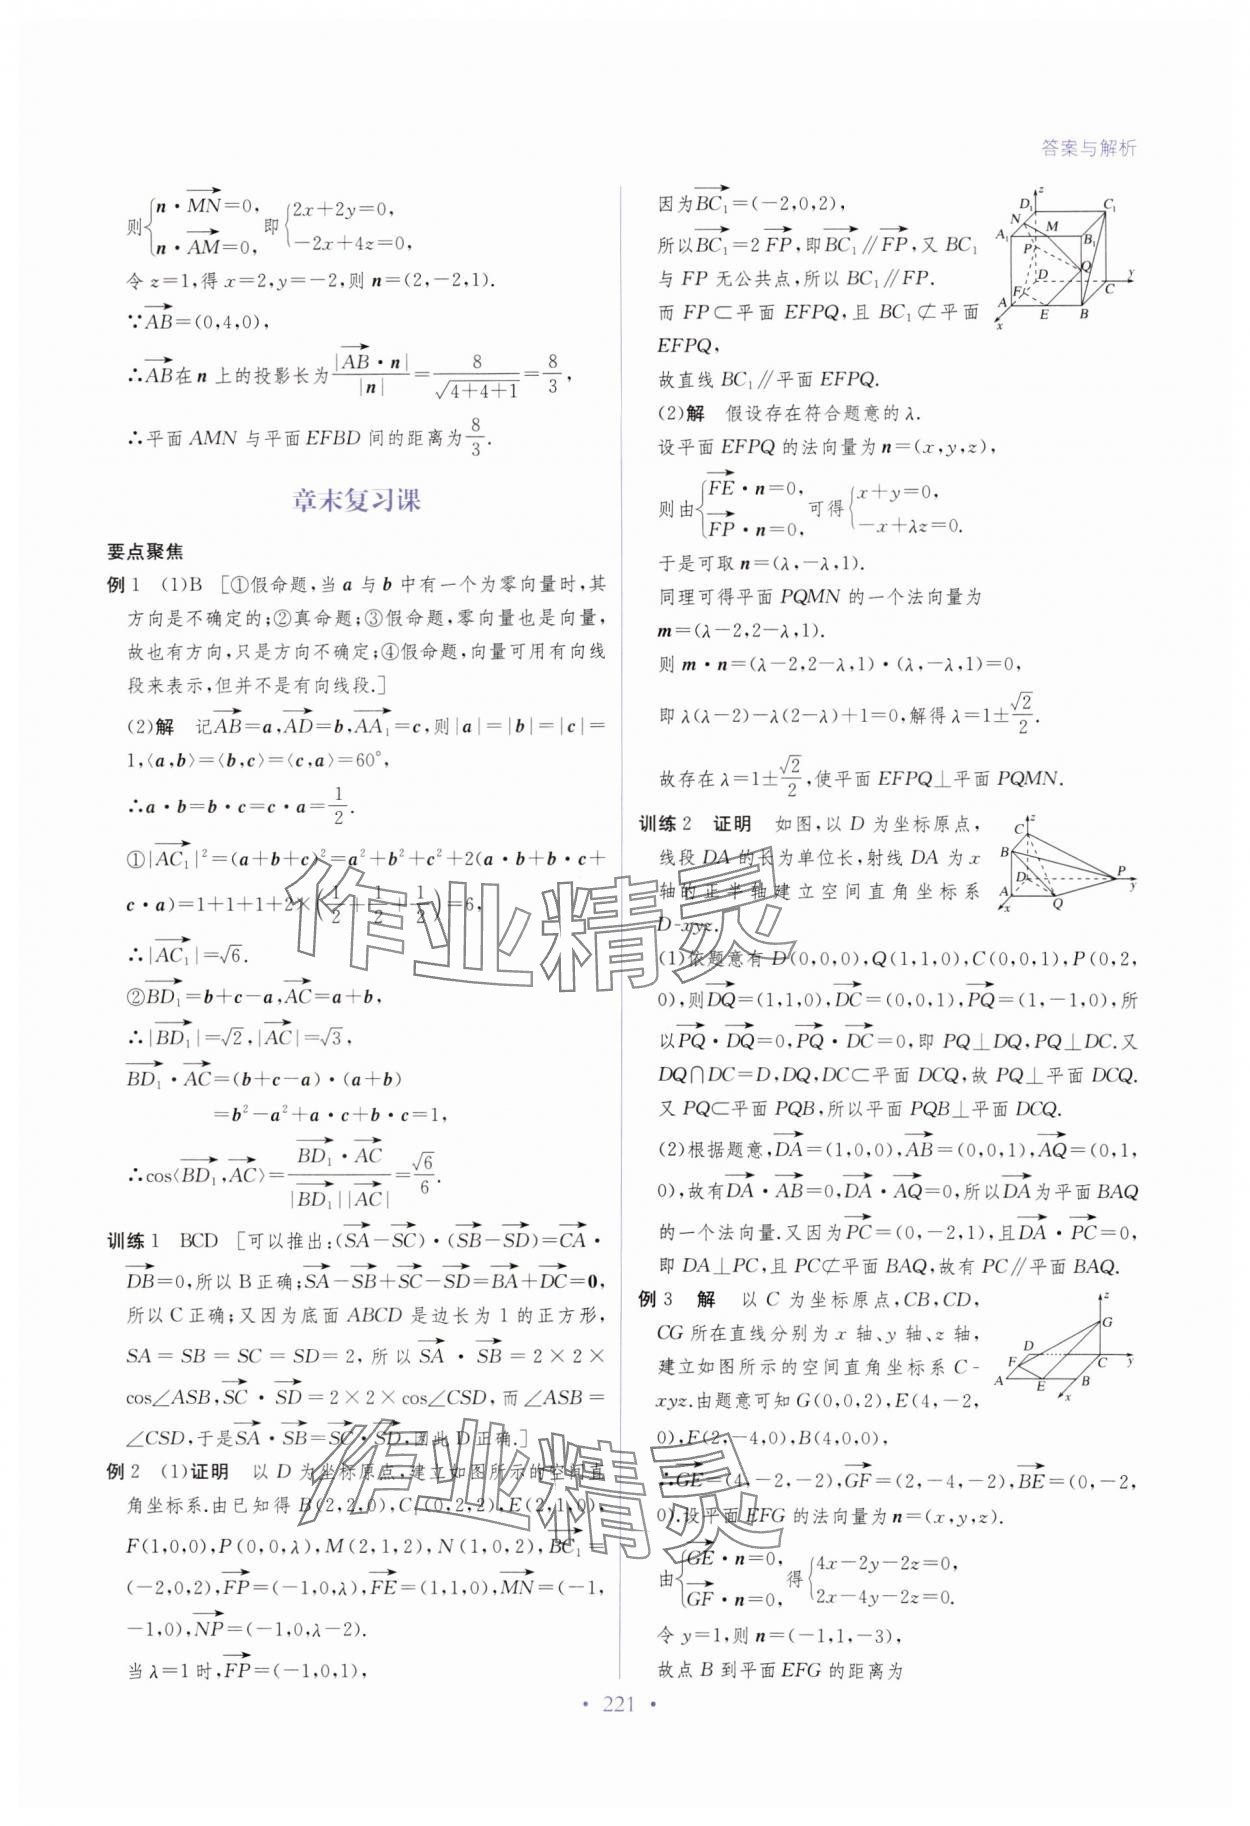 答案与解析
则{n·MN=0, n·AM=0, 即{2x+2y=0, -2x+4z=0,
令z=1,得x=2,y=-2,则n=(2,-2,1).
∵AB=(0,4,0),
∴AB在n上的投影长为|AB·n|/|n|=8/√(4+4+1)=8/3,
∴平面AMN与平面EFBD间的距离为8/3.
章末复习课
要点聚焦
例1 (1)B [①假命题,当a与b中有一个为零向量时,其
方向是不确定的;②真命题;③假命题,零向量也是向量,
故也有方向,只是方向不确定;④假命题,向量可用有向线
段来表示,但并不是有向线段.]
(2)解 记AB=a,AD=b,AA₁=c,则|a|=|b|=|c|=
1,⟨a,b⟩=⟨b,c⟩=⟨c,a⟩=60°,
∴a·b=b·c=c·a=1/2.
①|AC₁|²=(a+b+c)²=a²+b²+c²+2(a·b+b·c+
c·a)=1+1+1+2×(1/2+1/2+1/2)=6,
∴|AC₁|=√6.
②BD₁=b+c-a,AC=a+b,
∴|BD₁|=√2,|AC|=√3,
BD₁·AC=(b+c-a)·(a+b)
=b²-a²+a·c+b·c=1,
∴cos⟨BD₁,AC⟩=BD₁·AC/|BD₁||AC|=√6/6.
训练1 BCD [可以推出:(SA-SC)·(SB-SD)=CA·
DB=0,所以B正确;SA-SB+SC-SD=BA+DC=0,
所以C正确;又因为底面ABCD是边长为1的正方形,
SA=SB=SC=SD=2,所以SA·SB=2×2×
cos∠ASB,SC·SD=2×2×cos∠CSD,而∠ASB=
∠CSD,于是SA·SB=SC·SD,因此D正确.]
例2 (1)证明 以D为坐标原点,建立如图所示的空间直
角坐标系.由已知得B(2,2,0),C₁(0,2,2),E(2,1,0),
F(1,0,0),P(0,0,λ),M(2,1,2),N(1,0,2),BC₁=
(-2,0,2),FP=(-1,0,λ),FE=(1,1,0),MN=(-1,
-1,0),NP=(-1,0,λ-2).
当λ=1时,FP=(-1,0,1),
因为BC₁=(-2,0,2),
所以BC₁=2FP,即BC₁∥FP,又BC₁
与FP无公共点,所以BC₁∥FP.
而FP⊂平面EFPQ,且BC₁⊄平面
EFPQ,
故直线BC₁∥平面EFPQ.
(2)解 假设存在符合题意的λ.
设平面EFPQ的法向量为n=(x,y,z),
则由{FE·n=0, FP·n=0, 可得{x+y=0, -x+λz=0.
于是可取n=(λ,-λ,1).
同理可得平面PQMN的一个法向量为
m=(λ-2,2-λ,1).
则m·n=(λ-2,2-λ,1)·(λ,-λ,1)=0,
即λ(λ-2)-λ(2-λ)+1=0,解得λ=1±√2/2.
故存在λ=1±√2/2,使平面EFPQ⊥平面PQMN.
训练2 证明 如图,以D为坐标原点,
线段DA的长为单位长,射线DA为x
轴的正半轴建立空间直角坐标系
D-xyz.
(1)依题意有D(0,0,0),Q(1,1,0),C(0,0,1),P(0,2,
0),则DQ=(1,1,0),DC=(0,0,1),PQ=(1,-1,0),所
以PQ·DQ=0,PQ·DC=0,即PQ⊥DQ,PQ⊥DC.又
DQ∩DC=D,DQ,DC⊂平面DCQ,故PQ⊥平面DCQ.
又PQ⊂平面PQB,所以平面PQB⊥平面DCQ.
(2)根据题意,DA=(1,0,0),AB=(0,0,1),AQ=(0,1,
0),故有DA·AB=0,DA·AQ=0,所以DA为平面BAQ
的一个法向量.又因为PC=(0,-2,1),且DA·PC=0,
即DA⊥PC,且PC⊄平面BAQ,故有PC∥平面BAQ.
例3 解 以C为坐标原点,CB,CD,
CG所在直线分别为x轴、y轴、z轴,
建立如图所示的空间直角坐标系C-
xyz.由题意可知G(0,0,2),E(4,-2,
0),F(2,-4,0),B(4,0,0),
∴GE=(4,-2,-2),GF=(2,-4,-2),BE=(0,-2,
0).设平面EFG的法向量为n=(x,y,z).
由{GE·n=0, GF·n=0, 得{4x-2y-2z=0, 2x-4y-2z=0.
令y=1,则n=(-1,1,-3),
故点B到平面EFG的距离为
· 221 ·
作业精灵
作业精灵